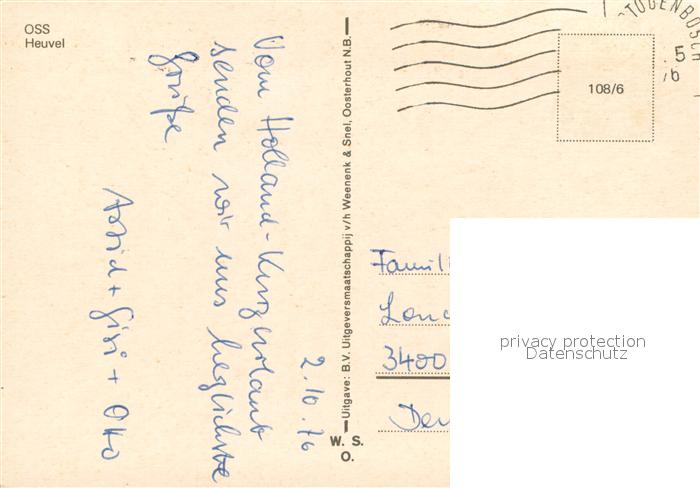 OSS
Heuvel
2.10.76
Vom Holland-Kurzurlaub
senden wir uns herzlichste
Grüße
Astrid + Gisi + Otto
Uitgave: B.V. Uitgeversmaatschappij v/h Weenenk & Snel, Oosterhout N.B.
W. S.
O.
TOGENBOSCH
5
76
108/6
Famili
3400
privacy protection
Datenschutz